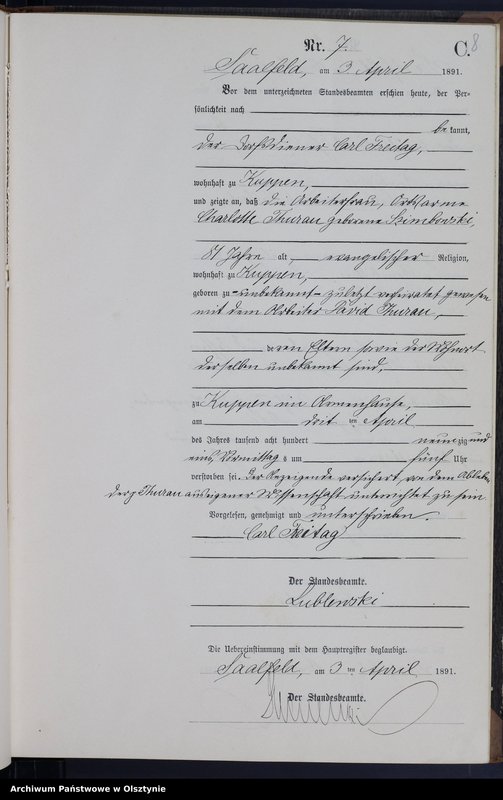 Nr. 7.
C.
8
Saalfeld, am 3 April 1891.
Vor dem unterzeichneten Standesbeamten erschien heute, der Per-
sönlichkeit nach
be kannt,
der Dorfsdiener Carl Freitag,
wohnhaft zu Kuppen,
und zeigte an, daß die Arbeiterfrau, Ortsarme
Charlotte Thurau geborene Szimbowski,
81 Jahre alt, evangelischer Religion,
wohnhaft zu Kuppen,
geboren zu unbekannt zuletzt verheiratet gewesen
mit dem Arbeiter David Thurau,
deren Eltern sowie der Wohnort
derselben unbekannt sind,
zu Kuppen im Armenhause,
am dritten April
des Jahres tausend acht hundert neunzig und
eins, Vormittags um fünf Uhr
verstorben sei. Der Anzeigende versichert, von dem Ableben
der p Thurau aus eigener Wissenschaft unterrichtet zu sein.
Vorgelesen, genehmigt und unterschrieben.
Carl Freitag
Der Standesbeamte.
Lublewski
Die Uebereinstimmung mit dem Hauptregister beglaubigt.
Saalfeld, am 3 ten April 1891.
Der Standesbeamte.
Archiwum Państwowe w Olsztynie